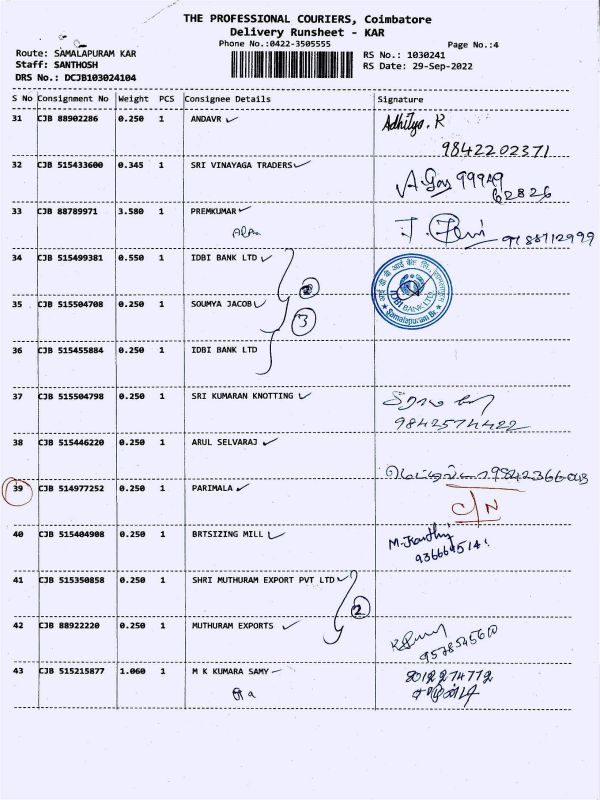 THE PROFESSIONAL COURIERS, Coimbatore
Delivery Runsheet - KAR
Phone No.:0422-3505555
Page No.:4
Route: SAMALAPURAM KAR
RS No.: 1030241
Staff: SANTHOSH
RS Date: 29-Sep-2022
DRS No.: DCJB103024104
S No Consignment No Weight PCS Consignee Details Signature
31 CJB 88902286 0.250 1 ANDAVR Adhitya. R
9842202371
32 CJB 515433600 0.345 1 SRI VINAYAGA TRADERS
62826
33 CJB 88789971 3.580 1 PREMKUMAR
9188712999
34 CJB 515499381 0.550 1 IDBI BANK LTD
IDBI BANK LTD.
Samalapuram Br.
35 CJB 515504708 0.250 1 SOUMYA JACOB
3
36 CJB 515455884 0.250 1 IDBI BANK LTD
37 CJB 515504798 0.250 1 SRI KUMARAN KNOTTING
9842574422
38 CJB 515446220 0.250 1 ARUL SELVARAJ
9842366043
39 CJB 514977252 0.250 1 PARIMALA
C/N
40 CJB 515404908 0.250 1 BRTSIZING MILL
41 CJB 515350858 0.250 1 SHRI MUTHURAM EXPORT PVT LTD
2
42 CJB 88922220 0.250 1 MUTHURAM EXPORTS
9578545600
43 CJB 515215877 1.060 1 M K KUMARA SAMY 8012274772